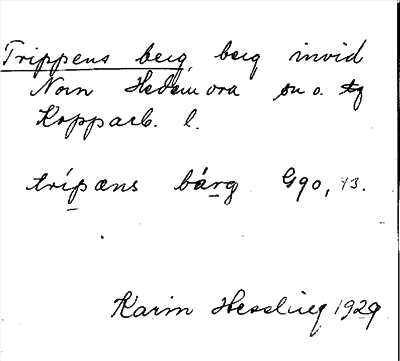 Trippens berg, berg invid
Norn Hedemora sn o. tg
Kopparb. l.
trípæns bárg G90, 43.
Karin Hessling 1929